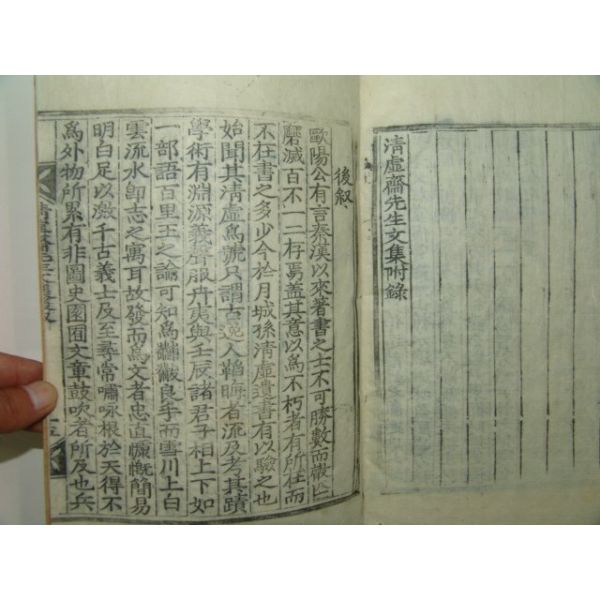 清虛齋先生文集附錄
後叙
歐陽公有言秦漢以來著書之士不可勝數而散亾
磨滅百不一二存焉盖其意以爲不朽者有所在而
不在書之多少今於月城孫淸虛遺書有以驗之也
始聞其淸虛爲號只謂古逸人韜晦者流及考其蹟
學術有淵源義聲服丹夷與壬辰諸君子相上下如
一部語百里王之論可知爲黼黻良手而雪川上白
雲流水卽志之寓耳故發而爲文者忠直慷慨簡易
明白足以激千古義士及至尋常嘯咏根於天得不
爲外物所累有非圖史園囿文章鼓吹者所及也兵